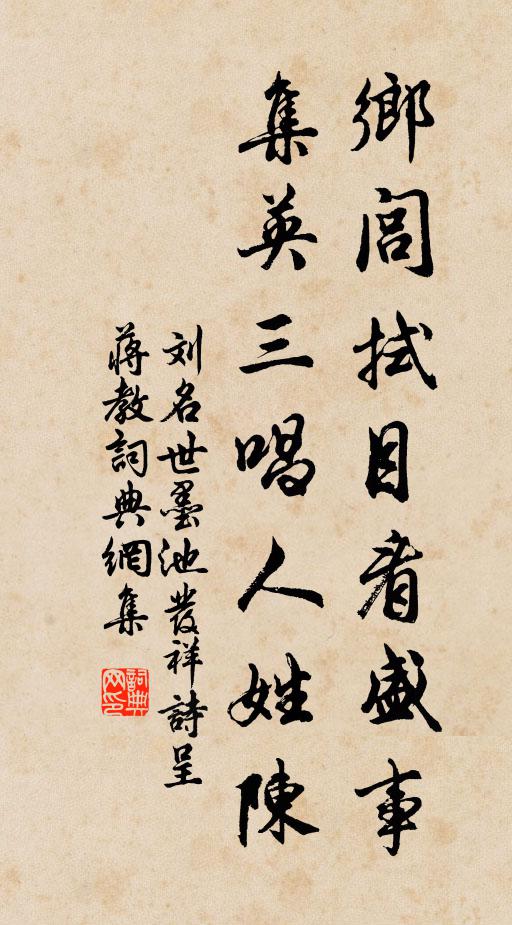 鄉閭拭目看盛事
集英三唱人姓陳
刘名世墨池發祥詩呈
蔣教詞典網集
詞典網印